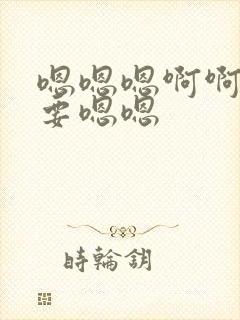 嗯嗯嗯啊啊
要嗯嗯
時輪鈅